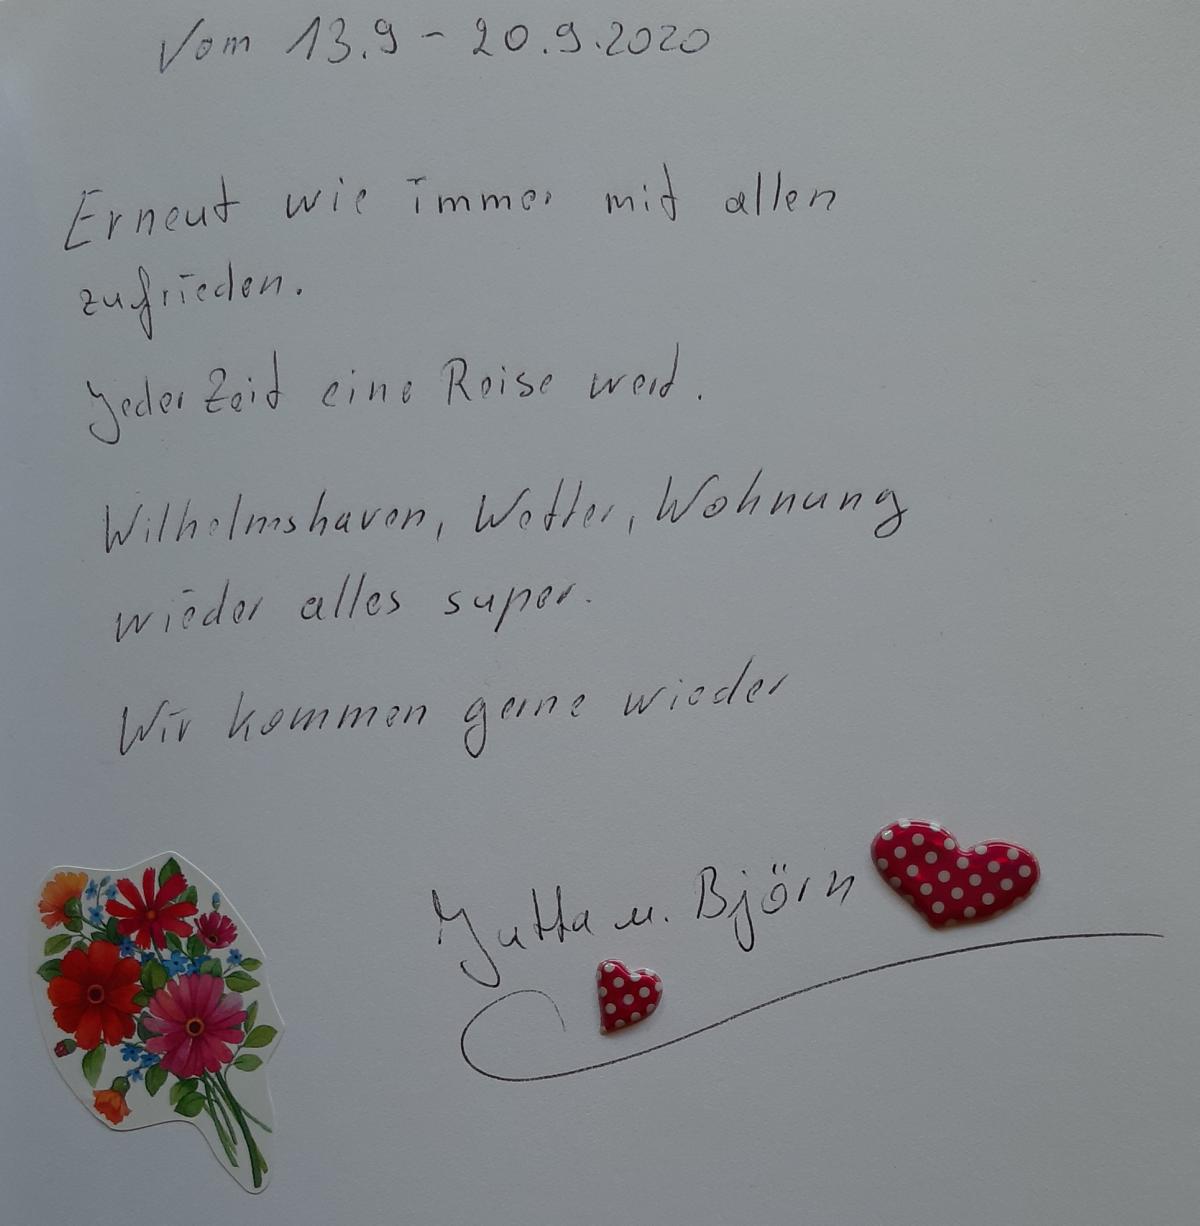 Vom 13.9 - 20.9.2020
Erneut wie immer mit allen
zufrieden.
Jeder Zeit eine Reise wert.
Wilhelmshaven, Wetter, Wohnung
wieder alles super.
Wir kommen gerne wieder
Jutta u. Björn